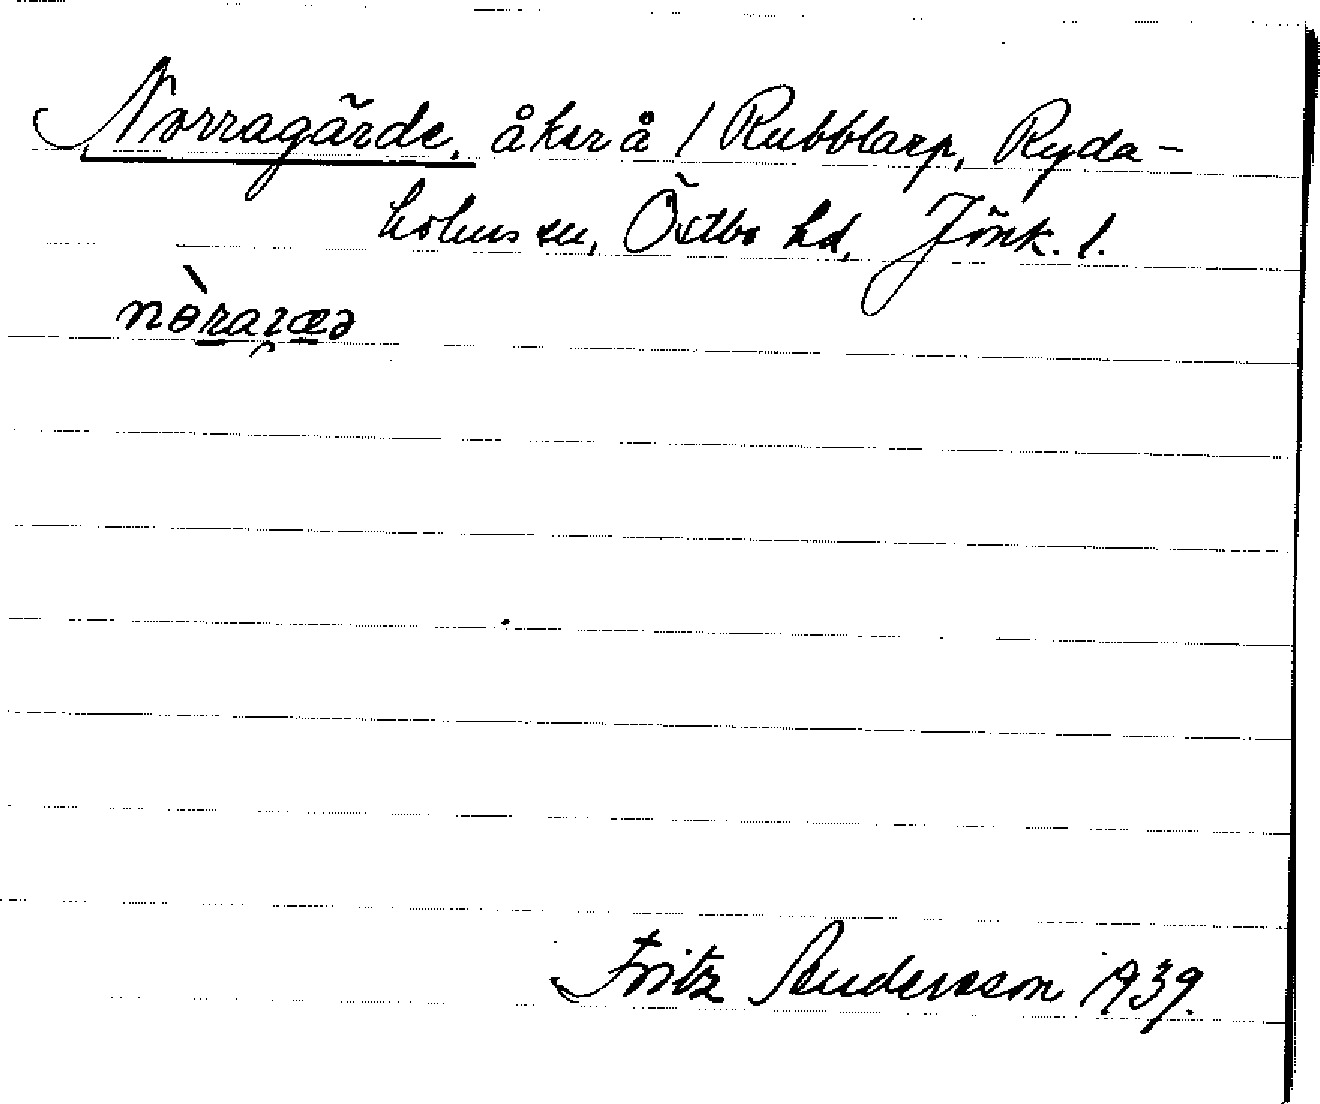 Norragärde, åker å / Rubbtarp, Ryda-
holms sn, Östbo hd, Jönk. l.
nòraɼæə
Fritz Andersson 1939.